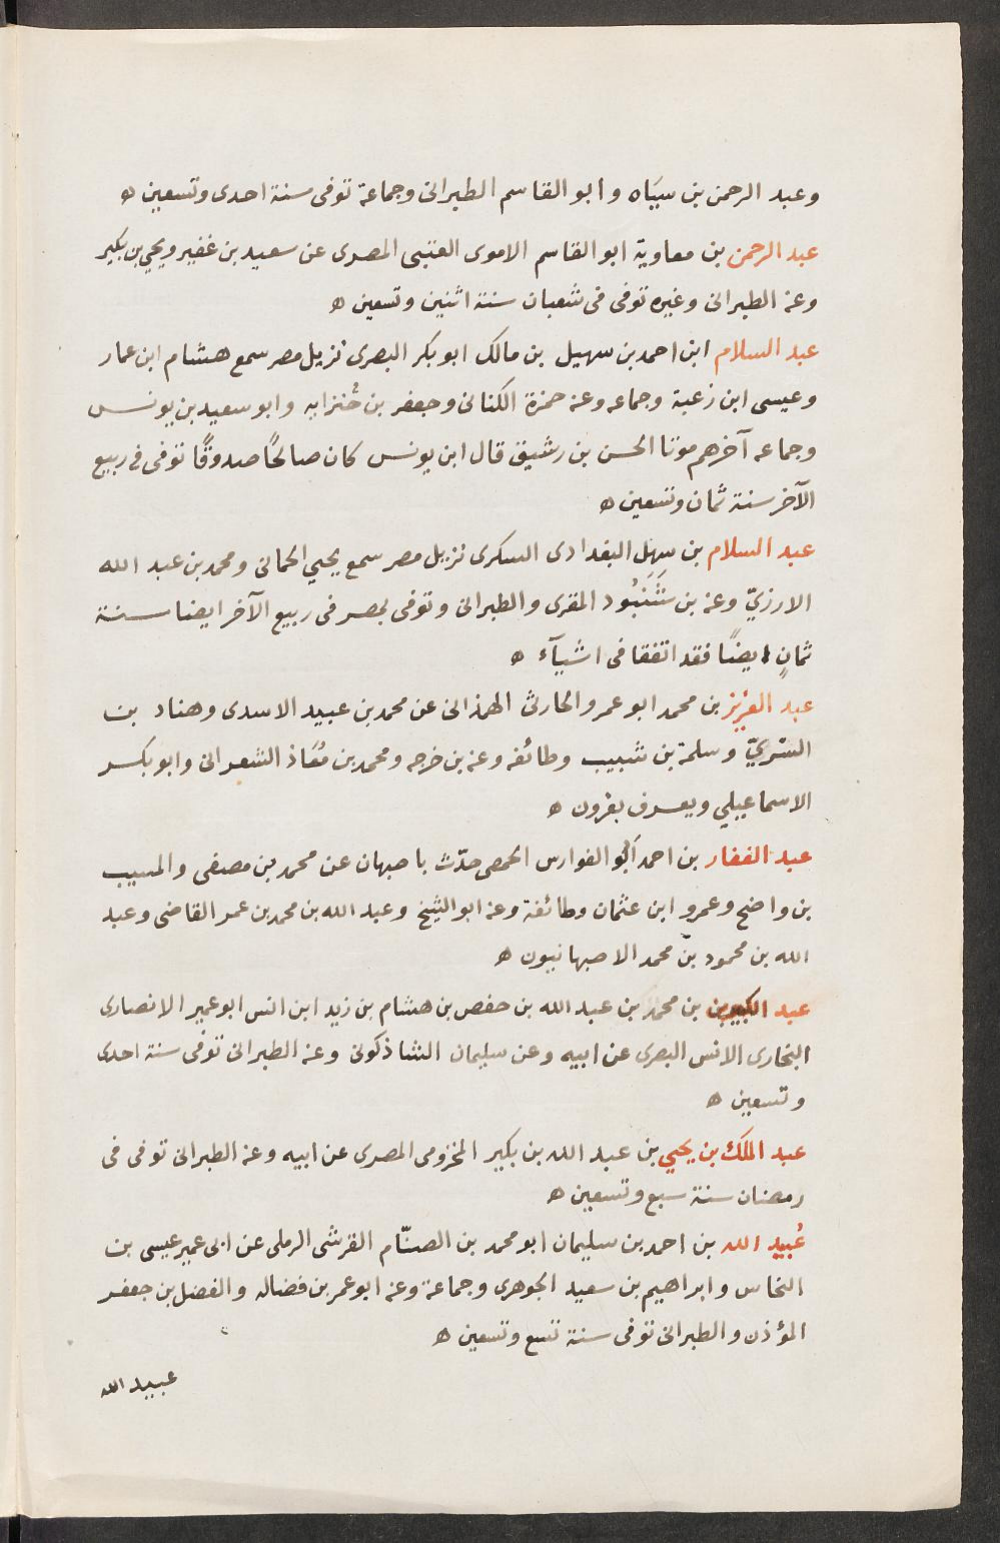 وعبد الرحمن بن سيَاه وابو القاسم الطبرانى وجماعة توفى سنة احدى وتسعين ه
عبد الرحمن بن معاوية ابو القاسم الاموى العتبى المصرى عن سعيد بن غفير ويحيى بن بكير
وعنه الطبرانى وغيره توفى فى شعبان سنة اثنين وتسعين ه
عبد السلام ابن احمد بن سهيل بن مالك ابو بكر البصرى نزيل مصر سمع هشام ابن عمار
وعيسى ابن زغبة وجماعه وعنه حمزة الكنانى وجعفر بن خُنزابه وابو سعيد بن يونس
وجماعه آخرهم موتا الحسن بن رشيق قال ابن يونس كان صالحًا صدوقًا توفى فى ربيع
الآخر سنة ثمان وتسعين ه
عبد السلام بن سهل البغدادى السكرى نزيل مصر سمع يحيي الحمانى ومحمد بن عبد الله
الارزيّ وعنه بن شَنَبُود المقرى والطبرانى وتوفى بمصر فى ربيع الآخر ايضا سنة
ثمانٍ ايضًا فقد اتفقا فى اشيآء ه
عبد العزيز بن محمد ابو عمرو الحارثى الهمذانى عن محمد بن عبيد الاسدى وهناد بن
السَّريّ وسلمة بن شبيب وطائفه وعنه بن خرجه ومحمد بن مُعَاذ الشعرانى وابو بكر
الاسماعيلي ويعرف بعزون ه
عبد الغفار بن احمد أبو الفوارس الحمصى حدّث باصبهان عن محمد بن مصفى والمسيب
بن واضح وعمرو ابن عثمان وطائفة وعنه ابو الشيخ وعبد الله بن محمد بن عمر القاضى وعبد
الله بن محمود بن محمد الاصبهانيون ه
عبد الكبير بن محمد بن عبد الله بن حفص بن هشام بن زيد ابن انس ابو عمير الانصارى
البخارى الانس البصرى عن ابيه وعن سليمان الشاذكونى وعنه الطبرانى توفى سنة احدى
وتسعين ه
عبد الملك بن يحيي بن عبد الله بن بكير المخزومى المصرى عن ابيه وعنه الطبرانى توفى فى
رمضان سنة سبع وتسعين ه
عُبيد الله بن احمد بن سليمان ابو محمد بن الصنّام القرشى الرملى عن ابى عمير عيسى بن
النحاس وابراهيم بن سعيد الجوهرى وجماعة وعنه ابو عمر بن فضاله والفضل بن جعفر
المؤذن والطبرانى توفى سنة تسع وتسعين ه
عبيد الله